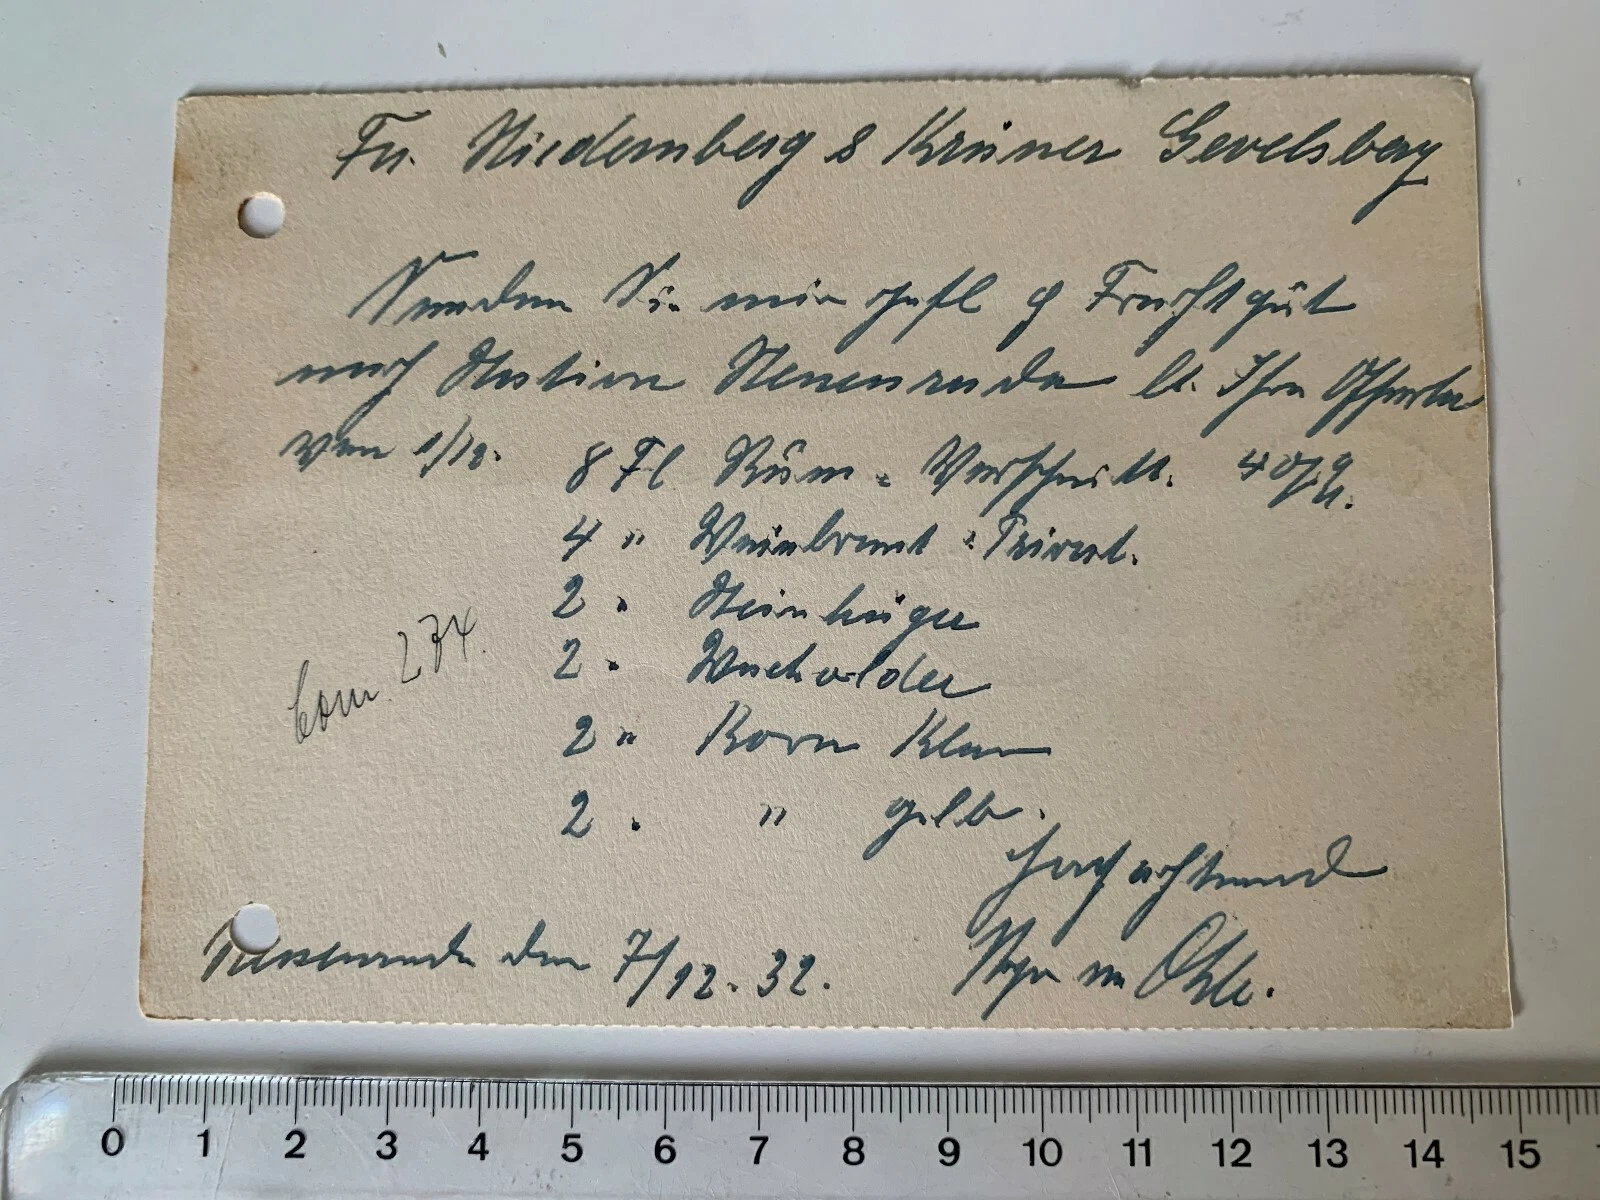 Fa. Niedernberg & Krüner Gevelsberg
Senden Sie mir gefl p Frachtgut
nach Station Neuenrade lt. Ihre Offerte
vom 1/12. 8 Fl Rum = Verschnitt. 40%
4 " Weinbrand = Privat.
2 " Steinhäger
2 " Wacholder
2 " Korn Klar
2 " " gelb.
Com. 234.
Hochachtend
Neuenrade den 7/12. 32.
Ohle.
0 1 2 3 4 5 6 7 8 9 10 11 12 13 14 15